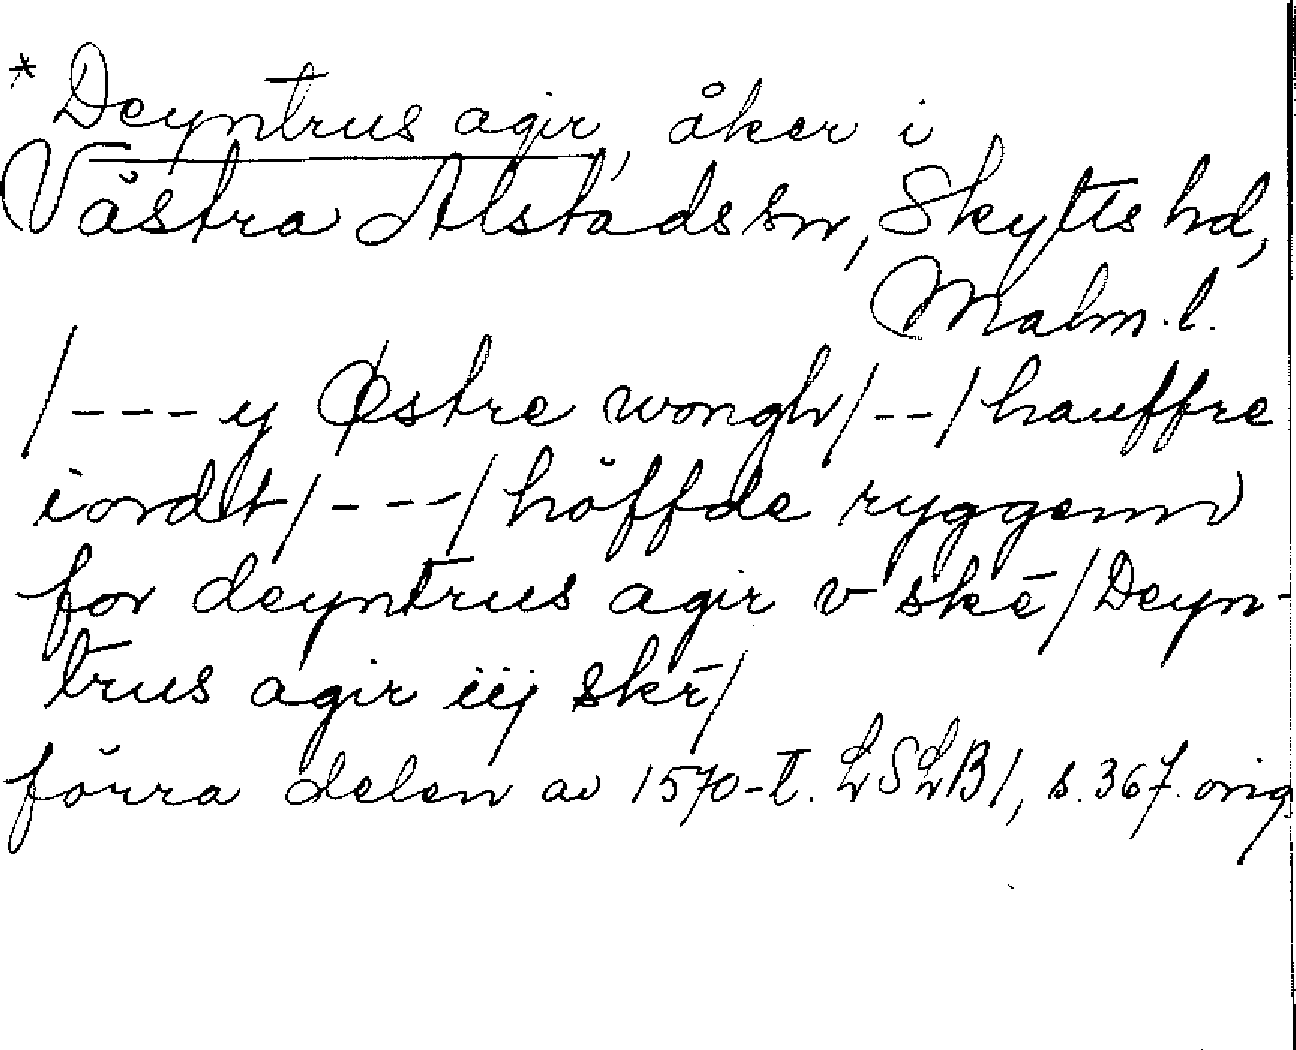 * Deyntrus agir, åker i
Västra Alstads sn, Skytts hd,
Malm.l.
/---y Østre wongh/--/hauffre
iordt/---/höffde ryggenn
for deyntrus agir v skē/Deyn-
trus agir iij skē/
förra delen av 1570-t. LSLB1, s.367. orig.